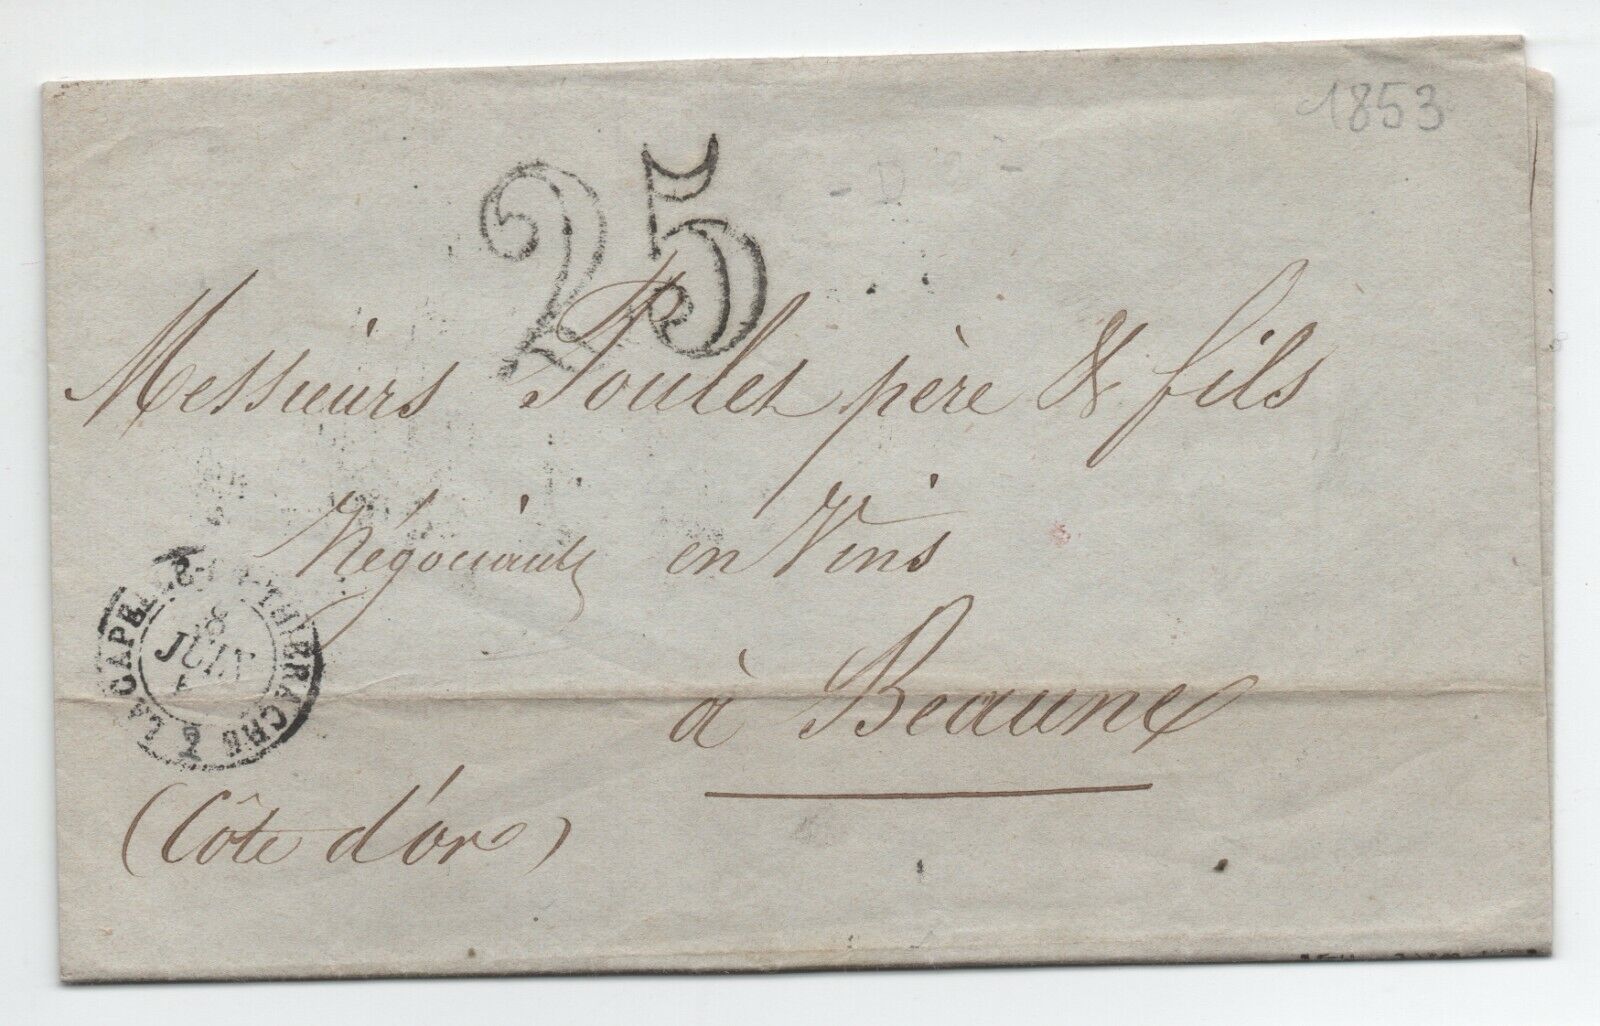 1853
25
Messieurs Poulet père & fils
Négociants en Vins
à Beaune
(Côte d'or)
LA CAPELLE-EN-THIERACHE
8
JUIN
2